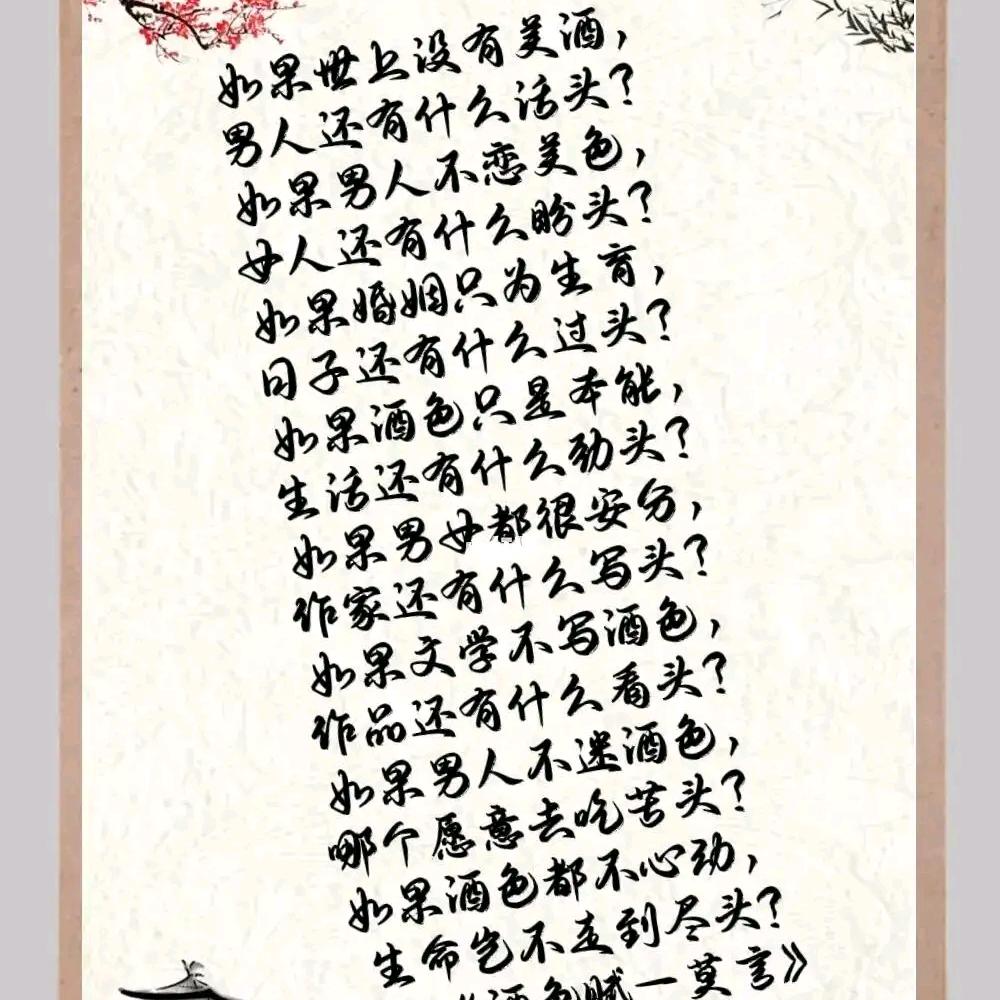 如果世上没有美酒，
男人还有什么活头？
如果男人不恋美色，
女人还有什么盼头？
如果婚姻只为生育，
日子还有什么过头？
如果酒色只是本能，
生活还有什么劲头？
如果男女都很安分，
作家还有什么写头？
如果文学不写酒色，
作品还有什么看头？
如果男人不迷酒色，
哪个愿意去吃苦头？
如果酒色都不心动，
生命岂不走到尽头？
《酒色赋一莫言》